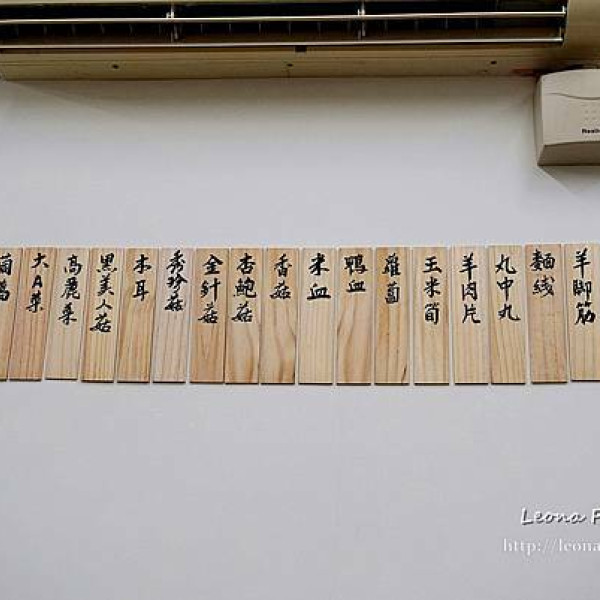 羊脚筋
麵线
丸中丸
羊肉片
玉米筍
蘿蔔
鴨血
米血
香菇
杏鮑菇
金針菇
秀珍菇
木耳
黑美人菇
高麗菜
大A菜
Leona
http://leona